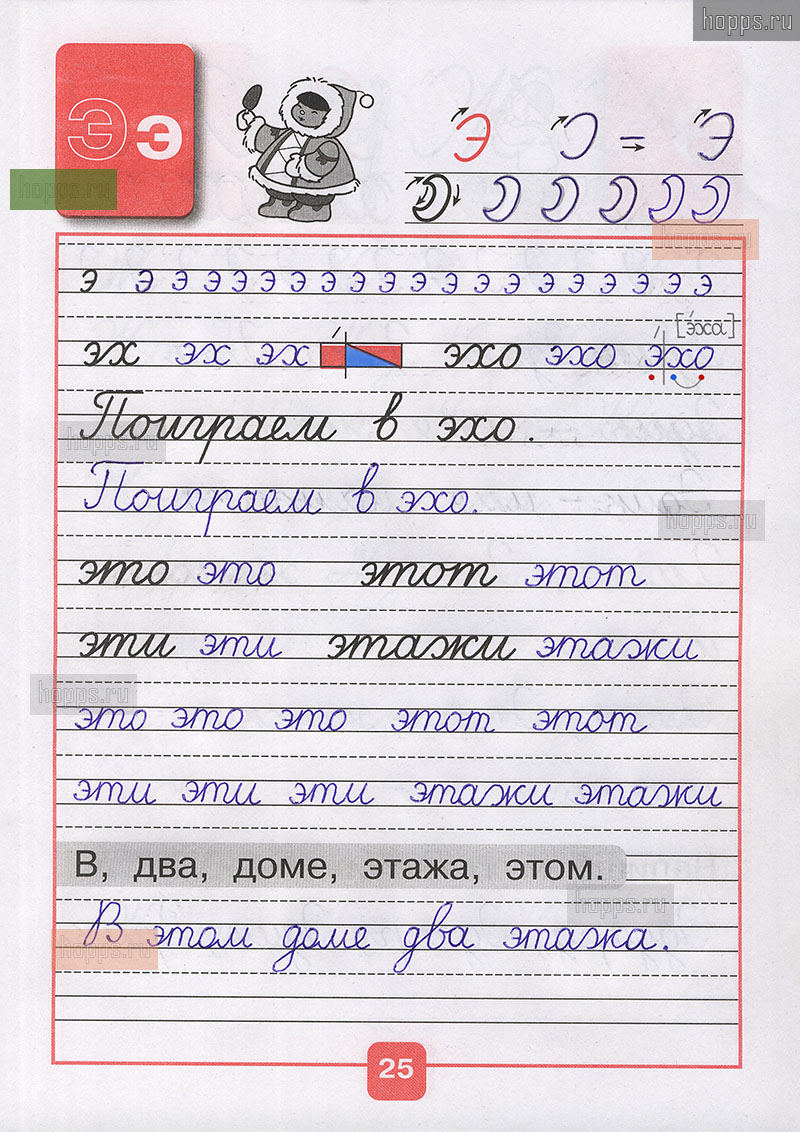 hopps.ru
Ээ
Э Э = Э
hopps.ru
hopps.ru
э э э э э э э э э э э э э э э э э э э э
[э́ха]
эх эх эх эхо эхо э́хо
Поиграем в эхо.
hopps.ru
Поиграем в эхо.
hopps.ru
это это этот этот
эти эти этажи этажи
hopps.ru
это это это этот этот
эти эти эти этажи этажи
В, два, доме, этажа, этом.
hopps.ru
В этом доме два этажа.
hopps.ru
25